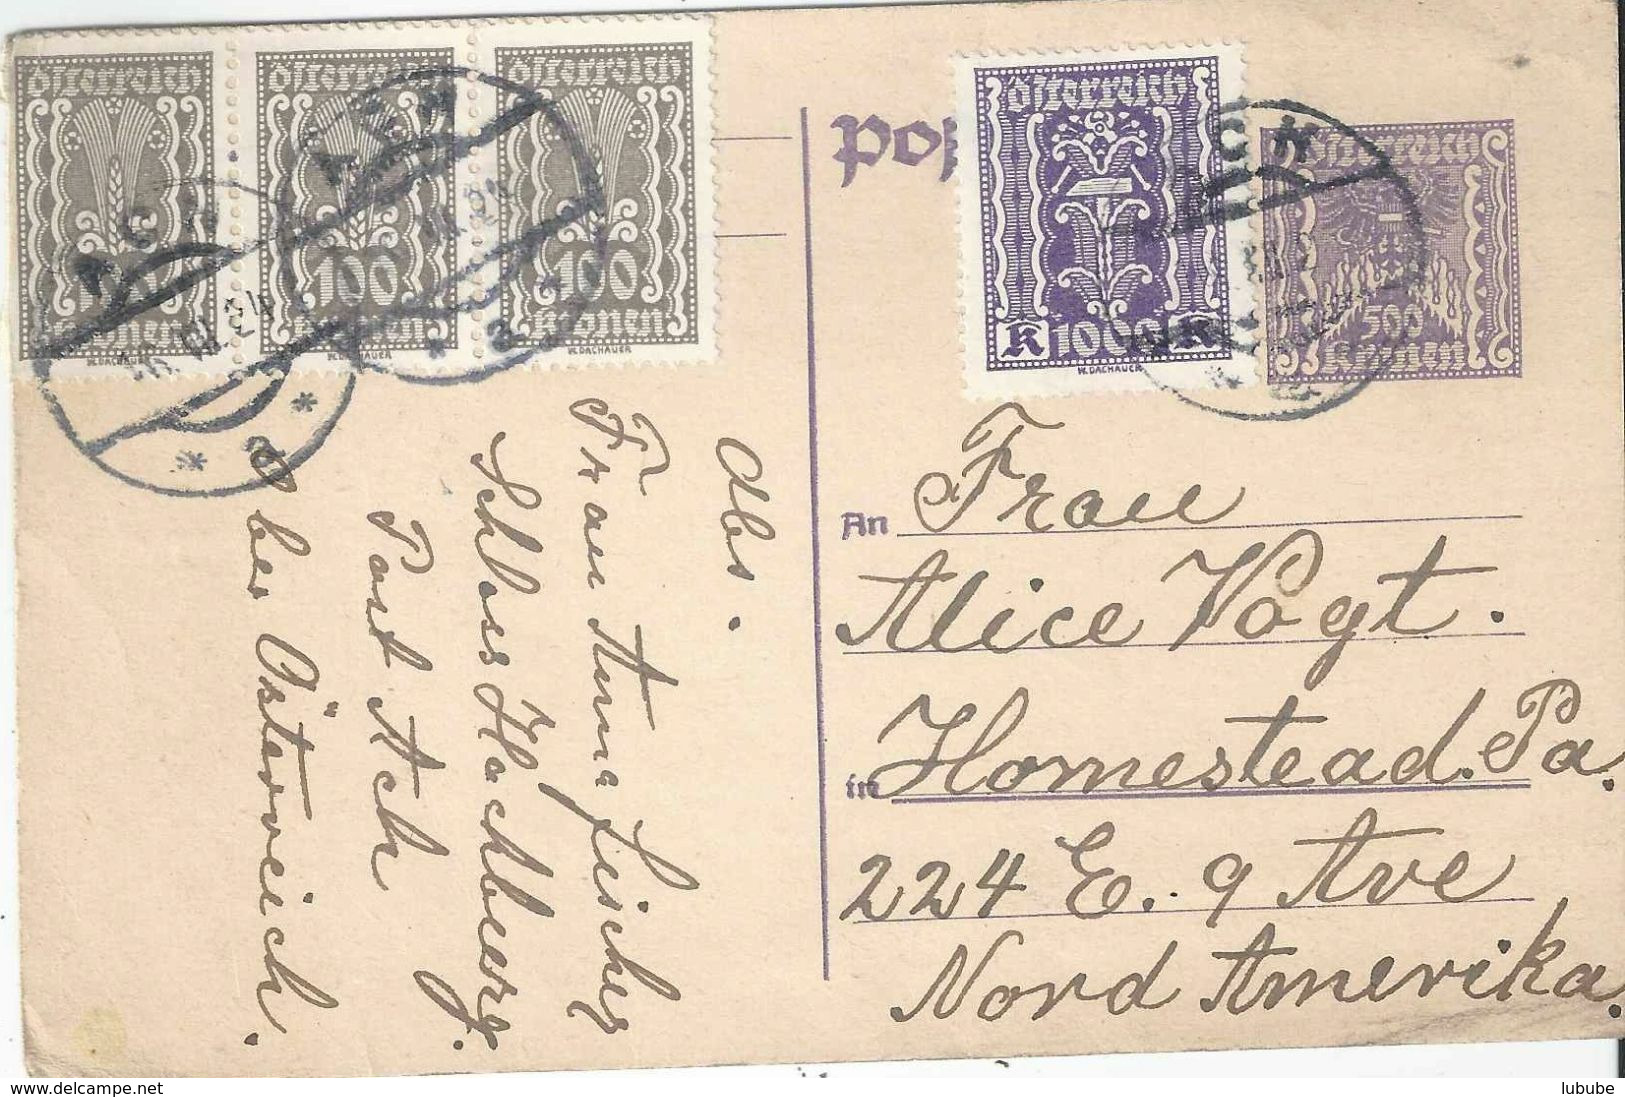 Österreich
100
Kronen
W.DACHAUER
Österreich
100
Kronen
W.DACHAUER
Österreich
100
Kronen
W.DACHAUER
Österreich
K 1000 K
W.DACHAUER
Österreich
500
Kronen
ACH
a
ACH
a
Abs.
Frau Anna Fischer
Schloss Hackberg.
Post Ach
Ober Österreich.
An Frau
Alice Vogt.
in Homestead. Pa.
224 E. 9 Ave
Nord Amerika.
delcampe.net
lubube